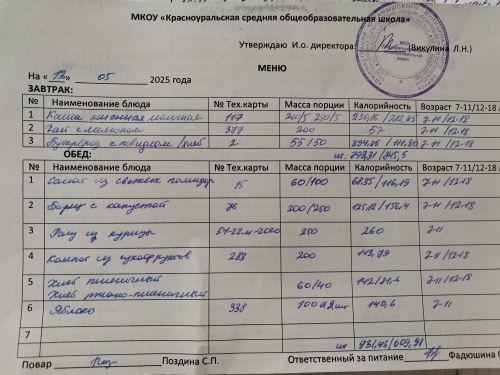 МКОУ «Красноуральская средняя общеобразовательная школа»
Утверждаю И.о. директора: (Викулина Л.Н.)
МЕНЮ
На « » 05 2025 года
ЗАВТРАК:
№ Наименование блюда № Тех.карты Масса порции Калорийность Возраст 7-11/12-18
1 Каша пшенная молочная 117 7-11/12-18
2 Чай с лимоном 377 200 57 7-11/12-18
3 Бутерброд с повидлом /хлеб 2 55/50 7-11/12-18
ОБЕД:
№ Наименование блюда № Тех.карты Масса порции Калорийность Возраст 7-11/12-18
1 Салат из свежих помидор 15 60/100 7-11/12-18
2 Борщ с капустой 200/250 7-11/12-18
3 Рагу из курицы 54-22м-2020 250 260 7-11
4 Компот из сухофруктов 200 113,79 7-11/12-18
5 Хлеб пшеничный
Хлеб ржано-пшеничный 60/40 7-11/12-18
6 Яблоко 338 100 140,6 7-11
7
Повар Поздина С.П. Ответственный за питание Фадюшина